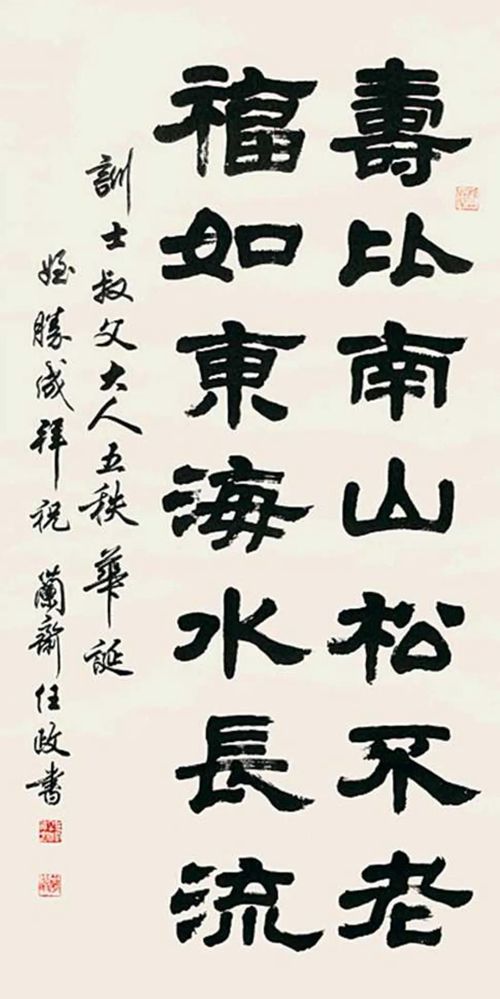 壽比南山松不老
福如東海水長流
訓士叔父大人五秩華誕
姪勝成拜祝 蘭齋任政書